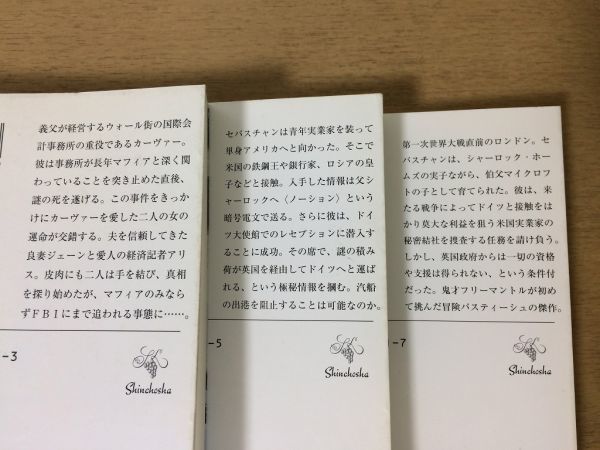 義父が経営するウォール街の国際会
計事務所の重役であるカーヴァー。
彼は事務所が長年マフィアと深く関
わっていることを突き止めた直後、
謎の死を遂げる。この事件をきっか
けにカーヴァーを愛した二人の女の
運命が交錯する。夫を信頼してきた
良妻ジェーンと愛人の経済記者アリ
ス。皮肉にも二人は手を結び、真相
を探り始めたが、マフィアのみなら
ずFBIにまで追われる事態に……。
-3
Shinchosha
セバスチャンは青年実業家を装って
単身アメリカへと向かった。そこで
米国の鉄鋼王や銀行家、ロシアの皇
子などと接触。入手した情報は父シ
ャーロックへ〈ノーション〉という
暗号電文で送る。さらに彼は、ドイ
ツ大使館でのレセプションに潜入す
ることに成功。その席で、謎の積み
荷が英国を経由してドイツへと運ば
れる、という極秘情報を掴む。汽船
の出港を阻止することは可能なのか。
-5
Shinchosha
第一次世界大戦直前のロンドン。セ
バスチャンは、シャーロック・ホー
ムズの実子ながら、伯父マイクロフ
トの子として育てられた。彼は、来
たる戦争によってドイツと接触をは
かり莫大な利益を狙う米国実業家の
秘密結社を捜査する任務を請け負う。
しかし、英国政府からは一切の資格
や支援は得られない、という条件付
だった。鬼才フリーマントルが初め
て挑んだ冒険パスティーシュの傑作。
-7
Shinchosha